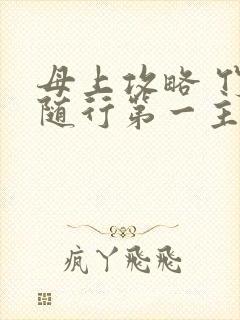 母上攻略
随行第一主
疯丫飛飛